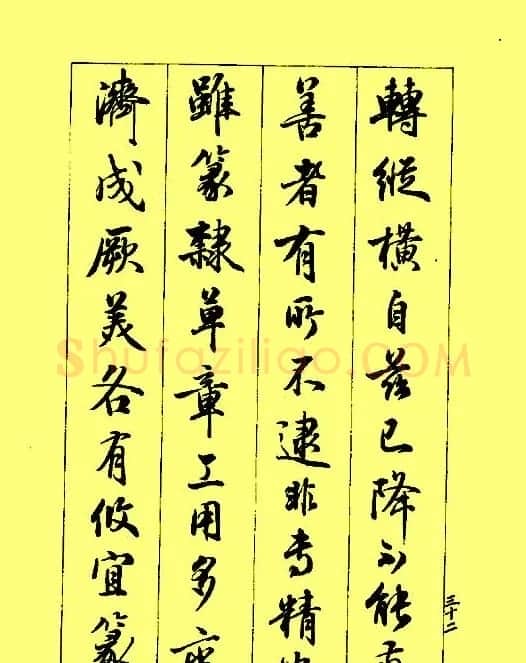 轉縱橫自茲已降不能
善者有所不逮非專精
雖篆隸草章工用多
濟成厥美各有攸宜篆
三十二
Shufaziliao.COM